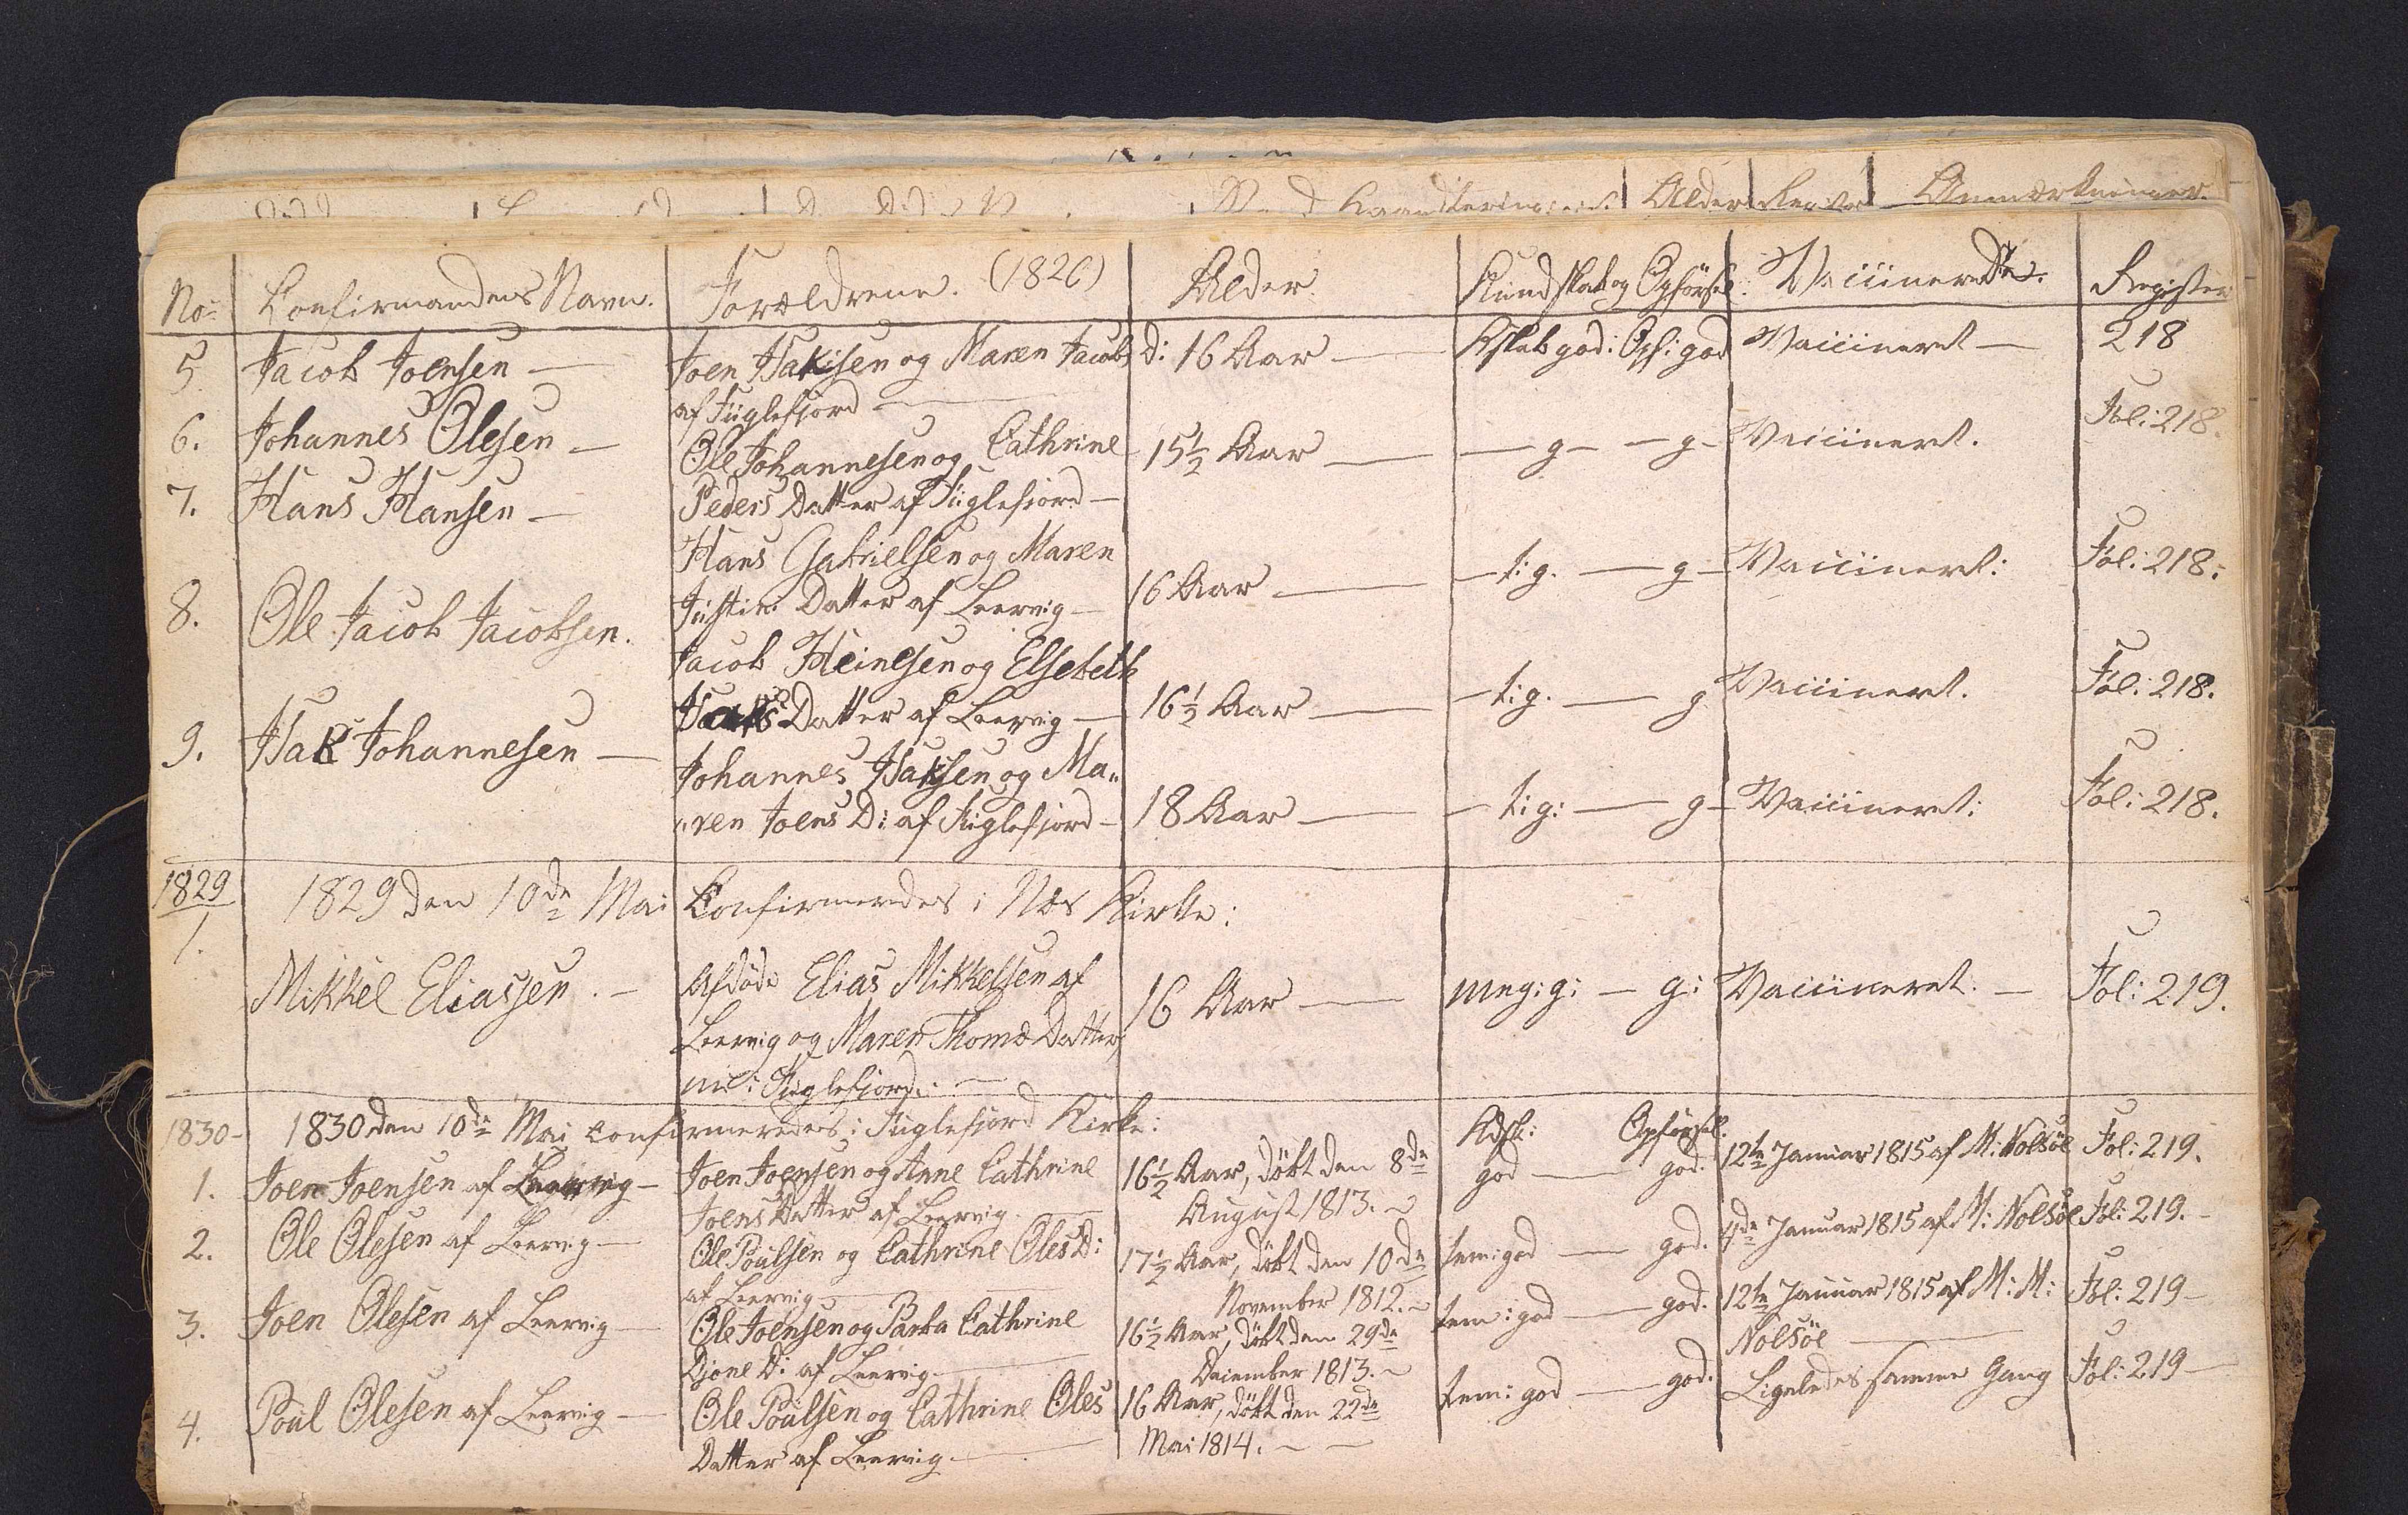 Haandtering Alder Register Anmærkninger.
No: Confirmandens Navn. Forældrene. (1826) Alder Kundskab og Opførsel. Vaccinerede. Register
5 Jacob Joensen — Joen Isaksen og Maren Jacobs D: 16 Aar — Kskab god: Opf: god Vaccineret — 218
af Fuglefjord —
6. Johannes Olesen — Ole Johannesen og Cathrine 15½ Aar — — g — — g — Vaccineret. Fol: 218.
7. Hans Hansen — Peders Datter af Fuglefjord —
Hans Gabrielsen og Maren
Justin: Datter af Leervig — 16 Aar — — t: g. — g — Vaccineret: Fol: 218:
8. Ole Jacob Jacobsen.
Jacob Heinesen og Elsebeth
Datter af Leervig — 16½ Aar — — t: g. — g Vaccineret. Fol: 218.
9. Isak Johannesen — Johannes Isaksen og Ma„
„ren Joens D: af Fuglefjord — 18 Aar — — t: g: — g — Vaccineret: Fol: 218.
1829 1829 den 10de Mai Confirmeredes i Næs Kirke:
1.
Mikkel Eliassen. — Afdøde Elias Mikkelsen af 16 Aar — meg: g: — g: Vaccineret. — Fol: 219.
Leervig og Maren Thomæ Datter
nu i Fuglefjord: —
1830 — 1830 den 10de Mai confirmeredes i Fuglefjord Kirke: Kdsk: Opførsel:
1. Joen Joensen af Leervig — Joen Joensen og Anne Cathrine 16½ Aar, døbt den 8de god — god. 12te Januar 1815 af M: Nolsöe Fol: 219.
Joens Datter af Leervig. August 1813. ~
2. Ole Olesen af Leervig — Ole Poulsen og Cathrine Oles D: 17½ Aar, døbt den 10de tem: god — god. 4de Januar 1815 af M: Nolsöe Fol: 219. —
af Leervig — November 1812. ~
3. Joen Olesen af Leervig — Ole Joensen og Barba Cathrine 16½ Aar, døbt den 29de tem: god — god. 12te Januar 1815 af M: M: Fol: 219 —
Djone D: af Leervig — December 1813. ~ Nolsöe —
4. Poul Olesen af Leervig — Ole Poulsen og Cathrine Oles 16 Aar, døbt den 22de tem: god — god. Ligeledes samme Gang Fol: 219 —
Datter af Leervig — Mai 1814. ~ —